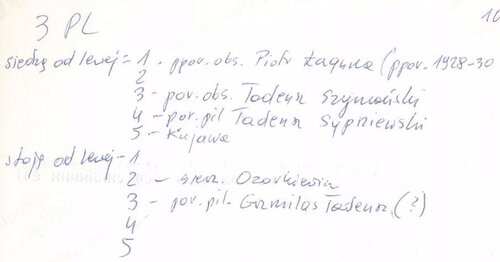 3 PL
10
siedzą od lewej = 1 - ppor. obs. Piotr Łaguna (ppor. 1928-30
2
3 - por. obs. Tadeusz Szymański
4 - por. pil Tadeusz Sypniewski
5 - Kujawa
stoją od lewej - 1
2 - sierż. Ozorkiewicz
3 - por. pil. Grzmilas Tadeusz (?)
4
5